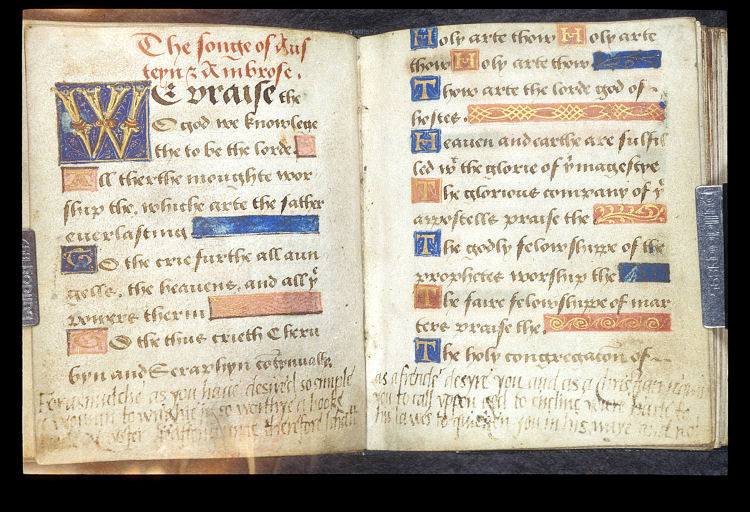 The songe of Aus
teyn & Ambrose.
WE praise the
O god we knowlege
the to be the lorde.
All therthe moughte wor
ship the, whiche arte the father
everlasting
To the crie furthe all aun
gells, the heavens, and all yͤ
powers therin
To the thus crieth Cheru
byn and Seraphyn cōtynually
Forasmutche as you haue desired so simple
a woman to wryghte in so worthye a booke
good mayster therefore I shall
Holy arte thow Holy arte
thow Holy arte thow
Thow arte the lorde god of
hostes.
Heaven and earthe are fulfil
led wᵗ the glorie of yͥ magestye
The glorious company of yͤ
appostells praise the
The godly felowshippe of the
prophetes worship the
The faire felowshippe of mar
ters praise the.
The holy congregacōn of
as a frende desyre you and as a Christian
you to call vpon god to encline youre harte to
his lawes to quicken you in his waye and not